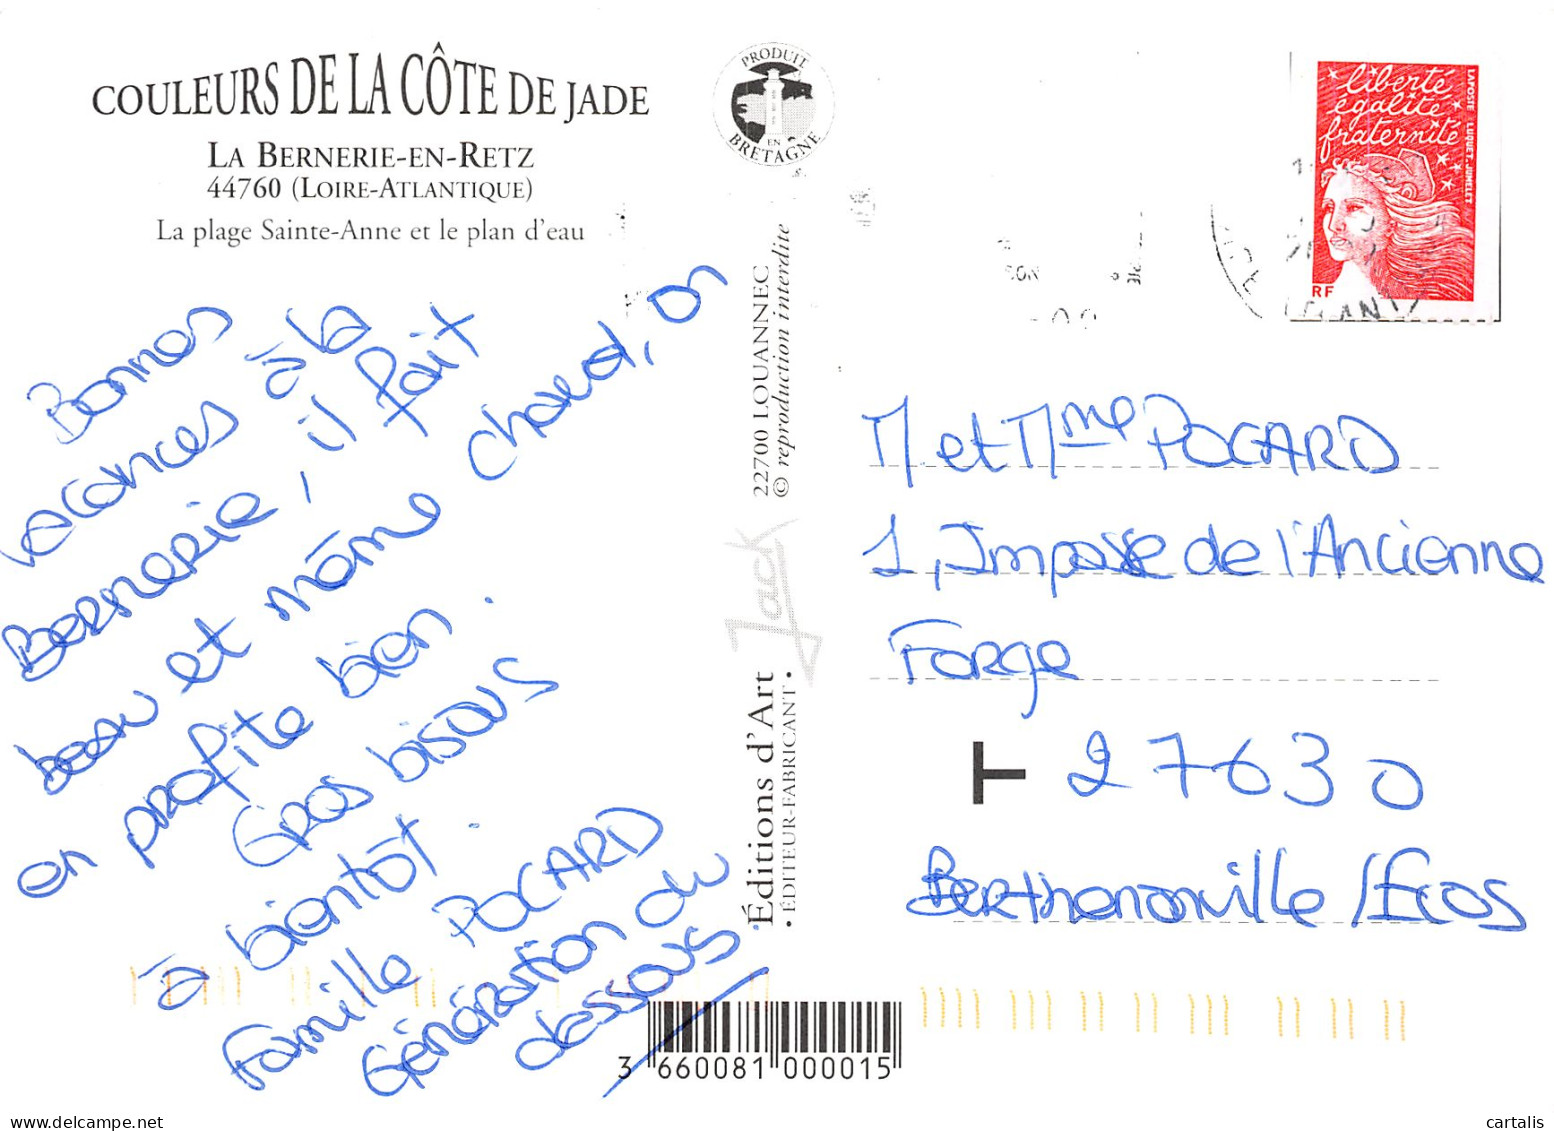 COULEURS DE LA CÔTE DE JADE
LA BERNERIE-EN-RETZ
44760 (LOIRE-ATLANTIQUE)
La plage Sainte-Anne et le plan d'eau
PRODUIT
EN
BRETAGNE
liberté
égalité
fraternité
LA POSTE LUQUET-JUMELET
RF
Bonnes
vacances à la
Bernerie, il fait
beau et même chaud, on
en profite bien.
Gros bisous
à bientôt.
Famille POCARD
Génération du
dessous
22700 LOUANNEC
© reproduction interdite
Jack
Éditions d'Art
• ÉDITEUR-FABRICANT •
M et Mme POCARD
1, Impasse de l'Ancienne
Forge
T 27630
Berthenonville / Ecos
3 660081 000015
cartalis